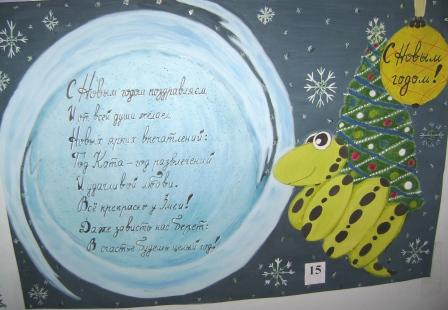 С Новым годом поздравляем
И от всей души желаем
Новых ярких впечатлений:
Год Кота – год развлечений
И удачливой любви.
Всё прекрасно у Змеи!
Даже зависть нас берет:
В счастье будешь целый год!
С Новым
годом!
15